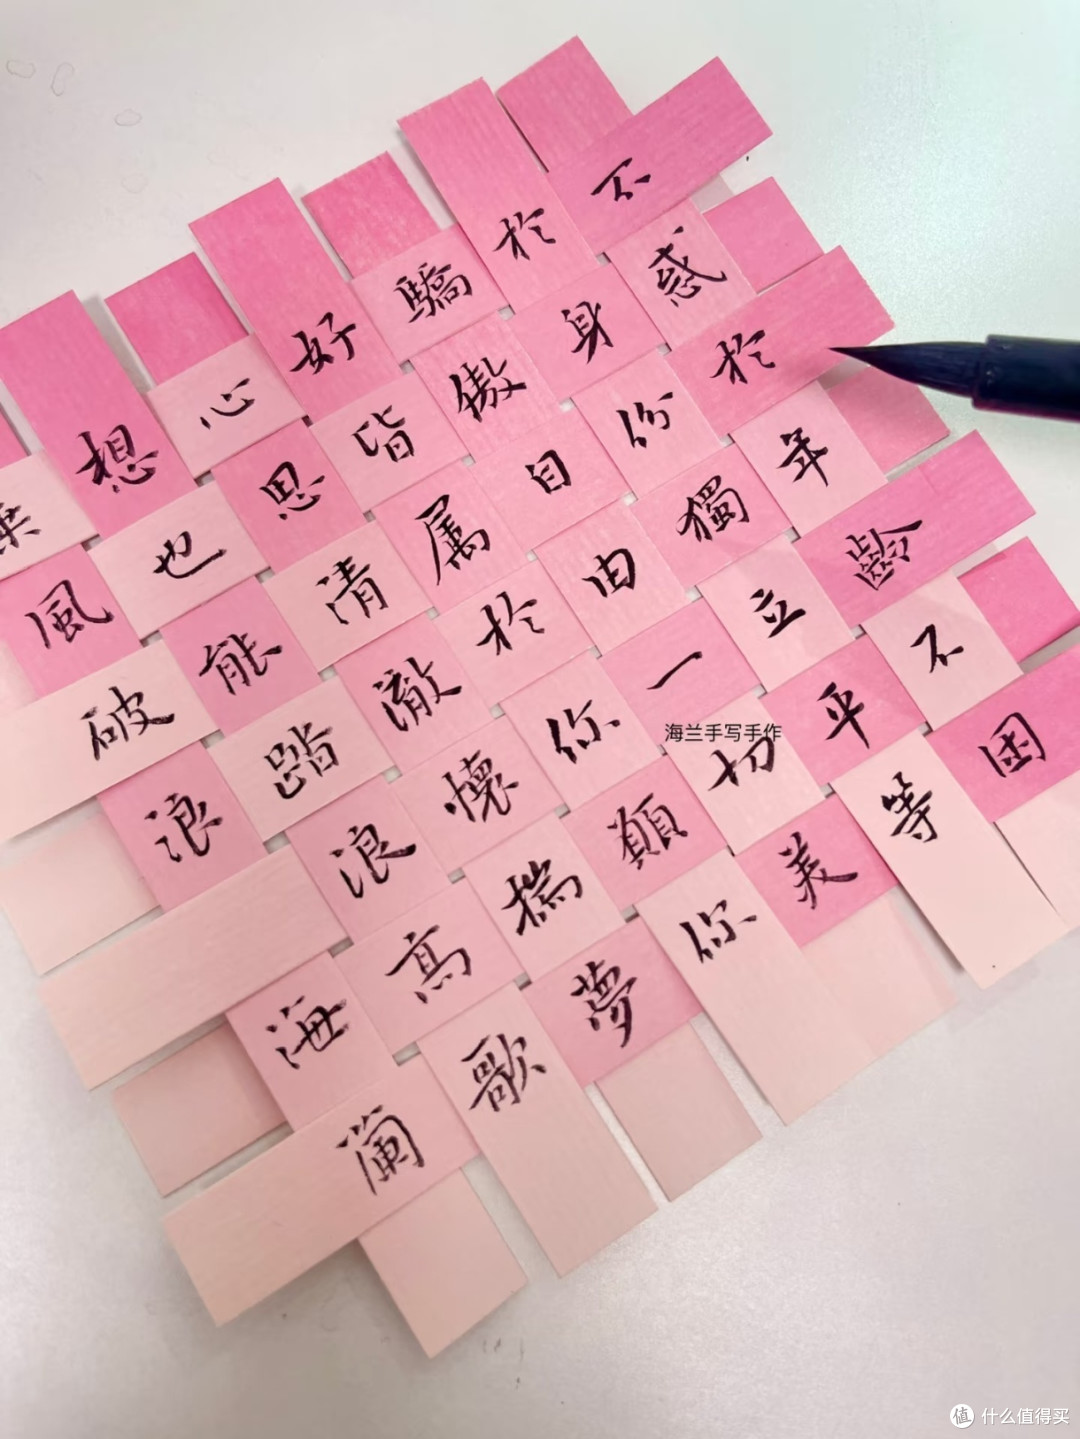 不惑於年齡不困
於身份獨立平等
驕傲自由一切美
好皆属於你願你
心思清澈懷揣夢
想也能踏浪高歌
乘風破浪 海蘭
海兰手写手作
值 什么值得买